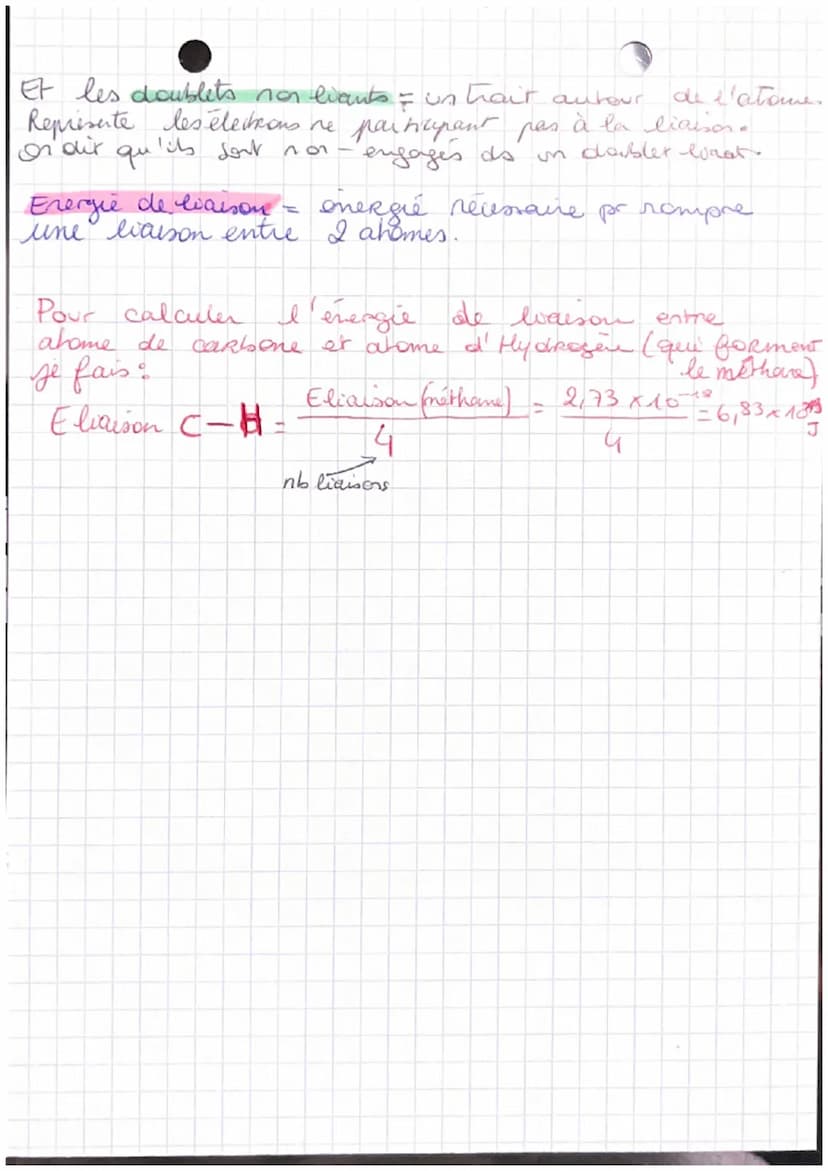 Et les doublets non liants = un trait autour de l'atome.
Représente les électrons ne participant pas à la liaison.
on dit qu'ils sont non-engagés ds un doublet liant.
Energie de liaison = énergie nécessaire pr rompre
une liaison entre 2 atomes.
Pour calculer l'énergie de liaison entre
atome de carbone et atome d'Hydrogène (qui forment
le méthane)
je fais :
E liaison C-H = Eliaison (méthane) / 4 = 2,73 × 10⁻¹⁸ / 4 = 6,83 × 10 J
nb liaisons